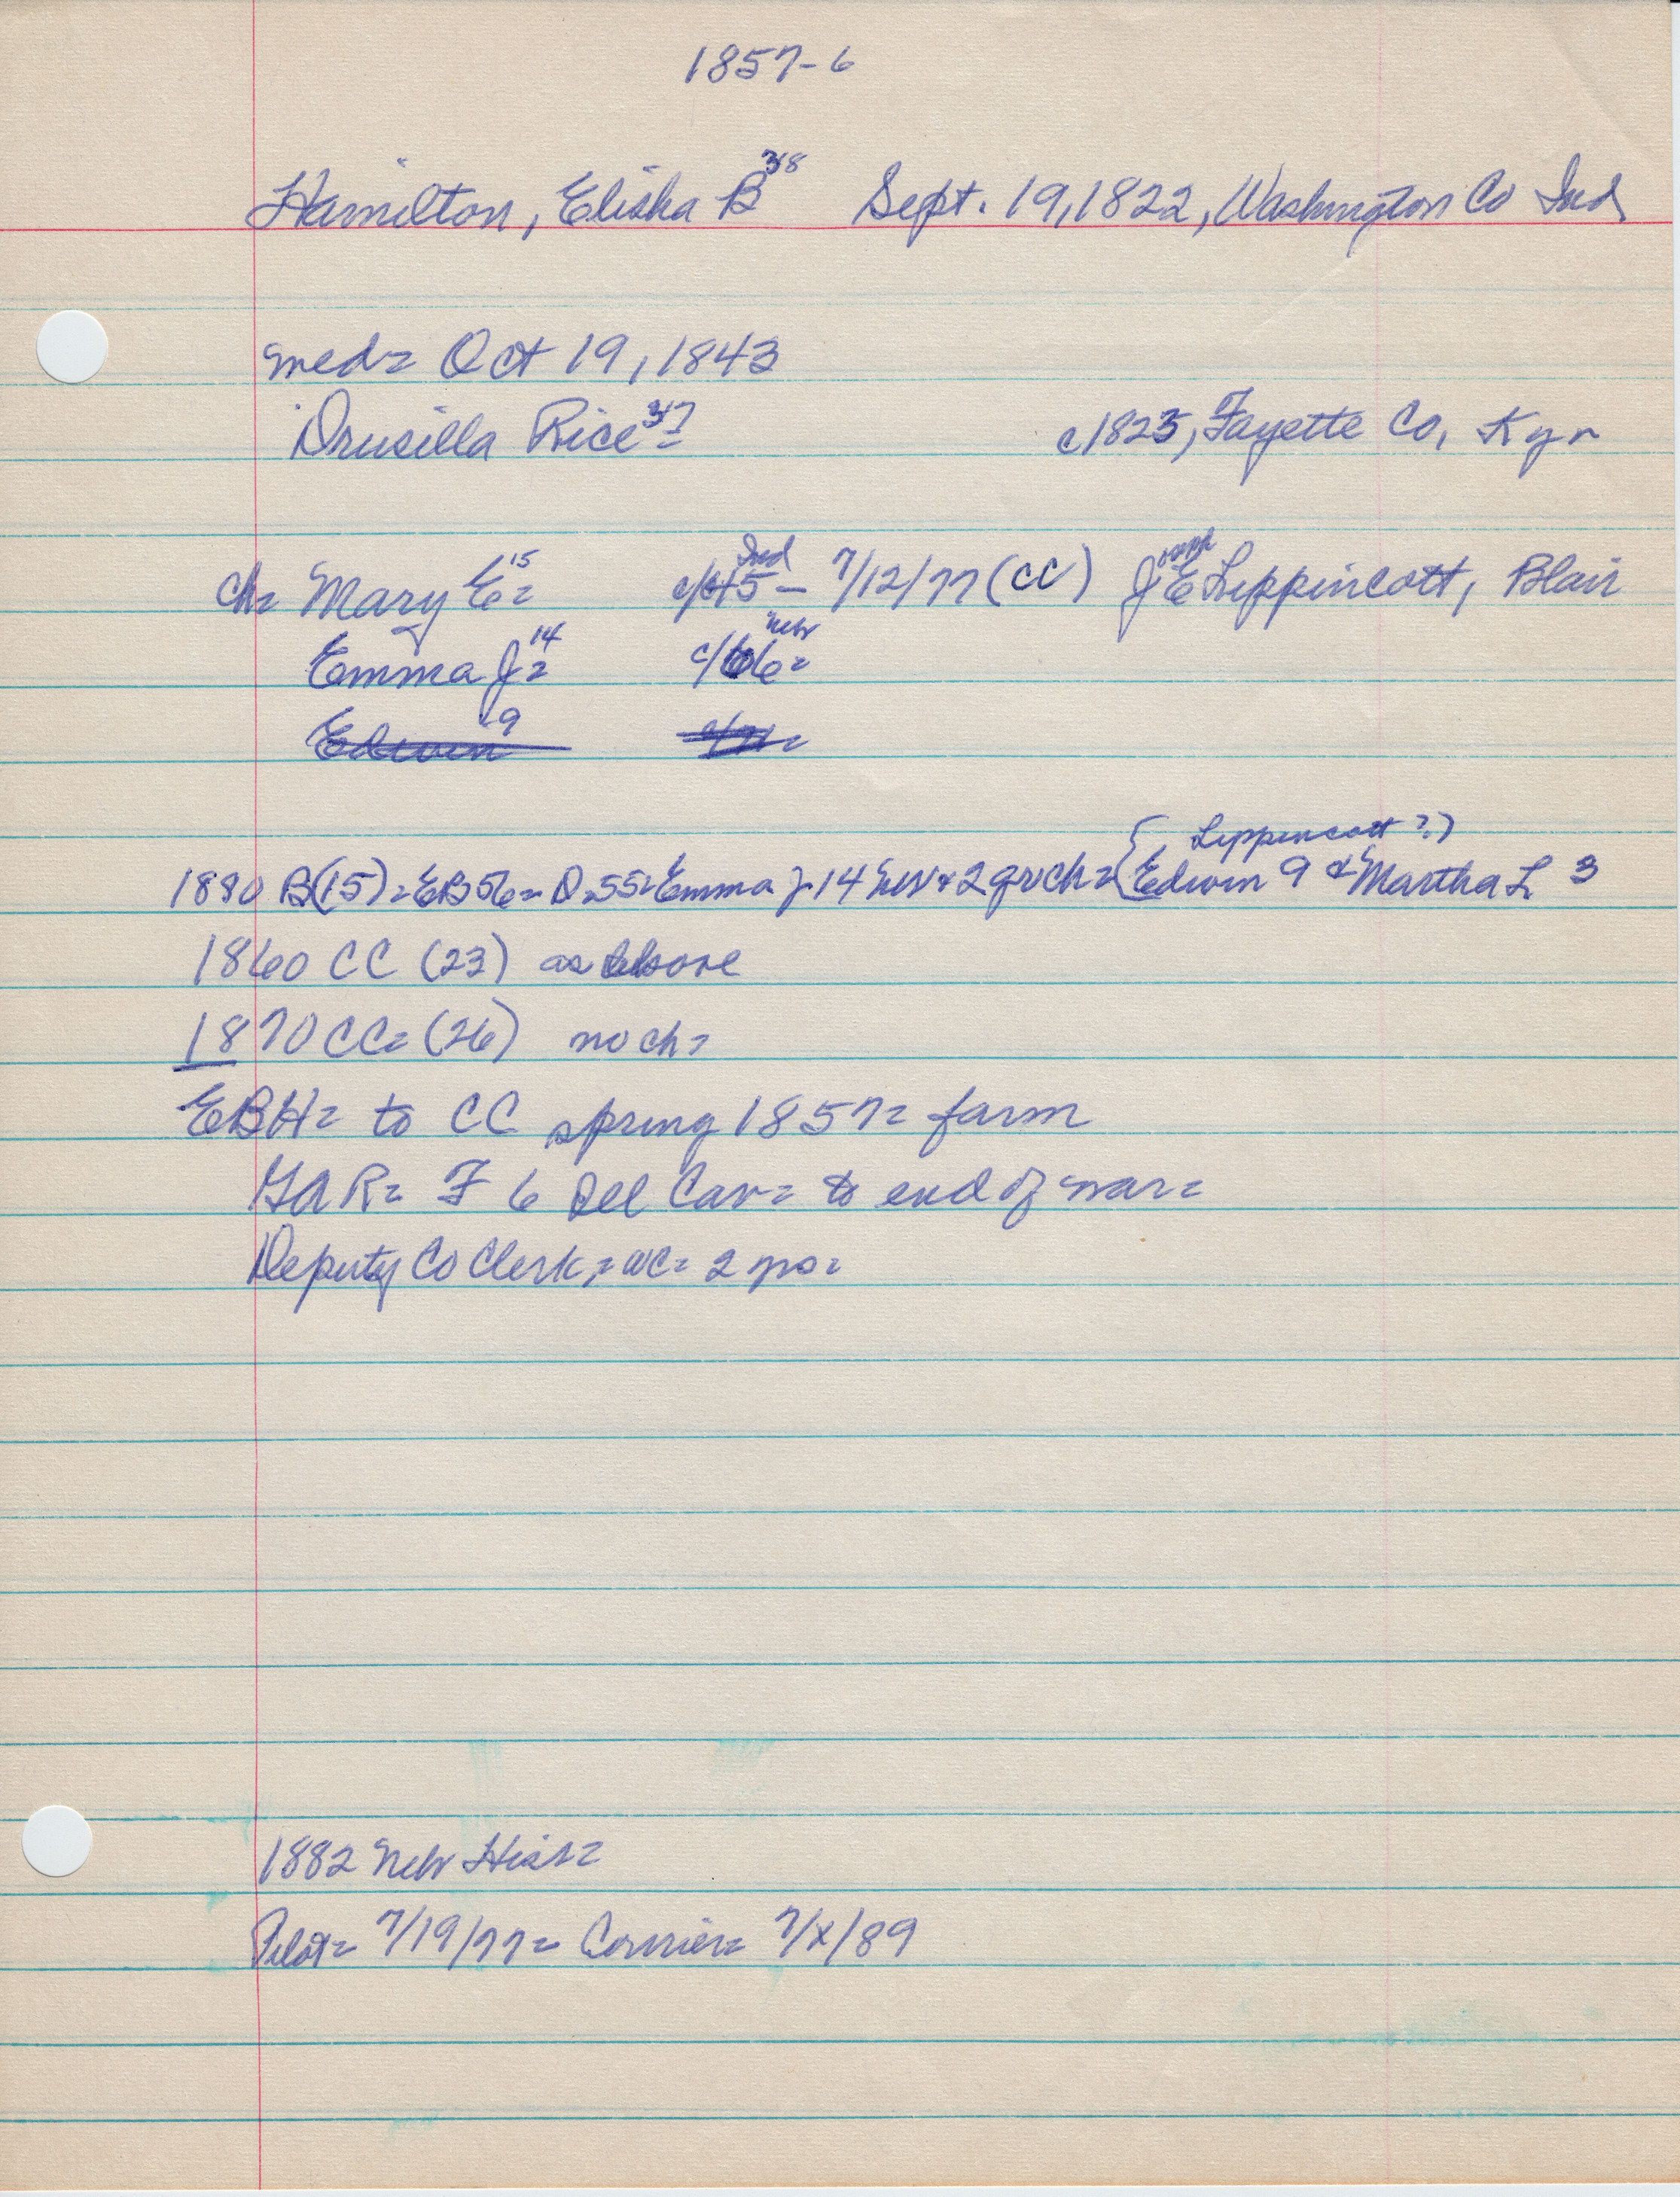 1857-6
Hamilton, Elisha B 38 Sept. 19, 1822, Washington Co Ind
med= Oct 19, 1843
Drusilla Rice 37 c1823, Fayette Co, Ky
ch= Mary E= 15 c/45 Ind - 7/12/77 (CC) Joseph E Lippincott, Blair
Emma J= 14 c/66= Nebr
Edwin 9
{ Lippencott?)
1880 B(15)= EB 56= D 55= Emma J 14 Nev + 2 grch= { Edwin 9 & Martha L 3
1860 CC (23) as above
1870 CC= (26) no ch=
EBH= to CC spring 1857= farm
GAR= F 6 Del Cav= to end of war=
Deputy Co Clerk,= WC= 2 yrs=
1882 Nebr Hist=
Pilot= 7/19/77= Courier= 7/x/89